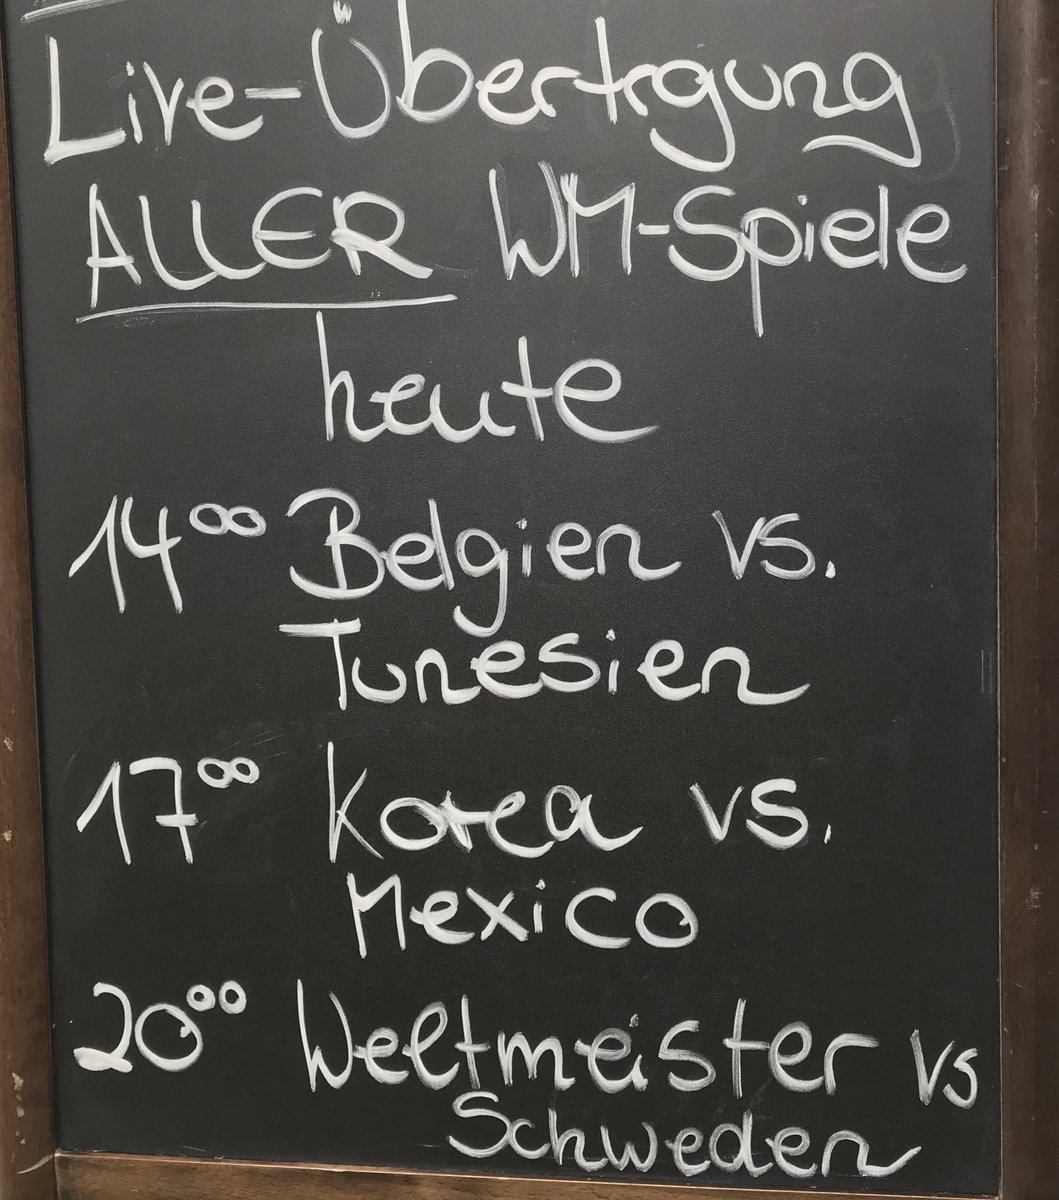 Live-Übertrgung
ALLER WM-Spiele
heute
14⁰⁰ Belgien vs.
Tunesien
17⁰⁰ Korea vs.
Mexico
20⁰⁰ Weltmeister vs
Schweden